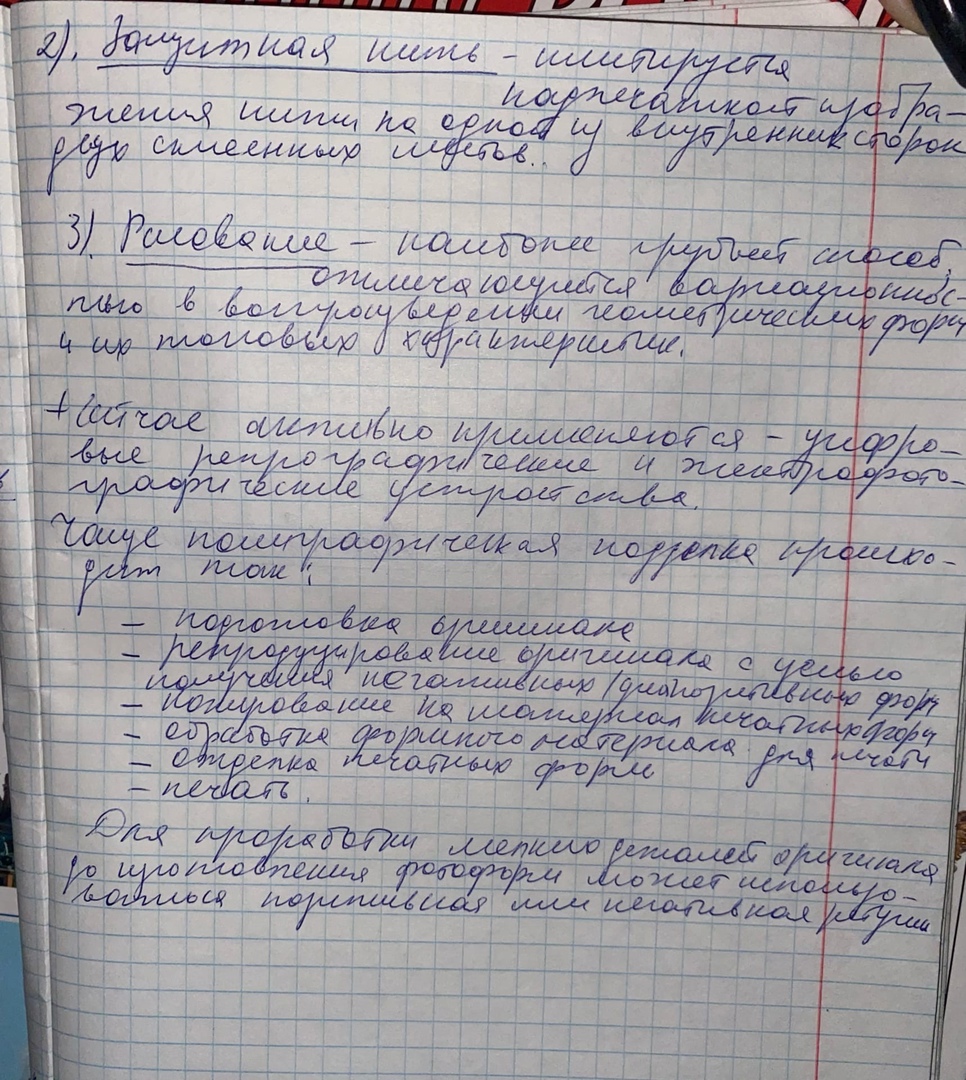 2). Защитная нить - имитируется
надпечаткой изобра-
жения нити на одной из внутренних сторон
двух склеенных листов.
3). Рисование - наиболее грубый способ,
отличающийся вариационнос-
тью в воспроизведении геометрических форм
и их типовых характеристик.
+ Сейчас активно применяются - цифро-
вые репрографические и электрофото-
графические устройства.
Чаще полиграфическая подделка происхо-
дит так:
- подготовка оригинала
- репродуцирование оригинала с целью
получения негативных/диапозитивных форм
- копирование на материал печатных форм
- обработка формного материала для печати
- отделка печатных форм
- печать.
Для проработки мелких деталей оригинала
до изготовления фотоформ может использо-
ваться позитивная или негативная ретушь